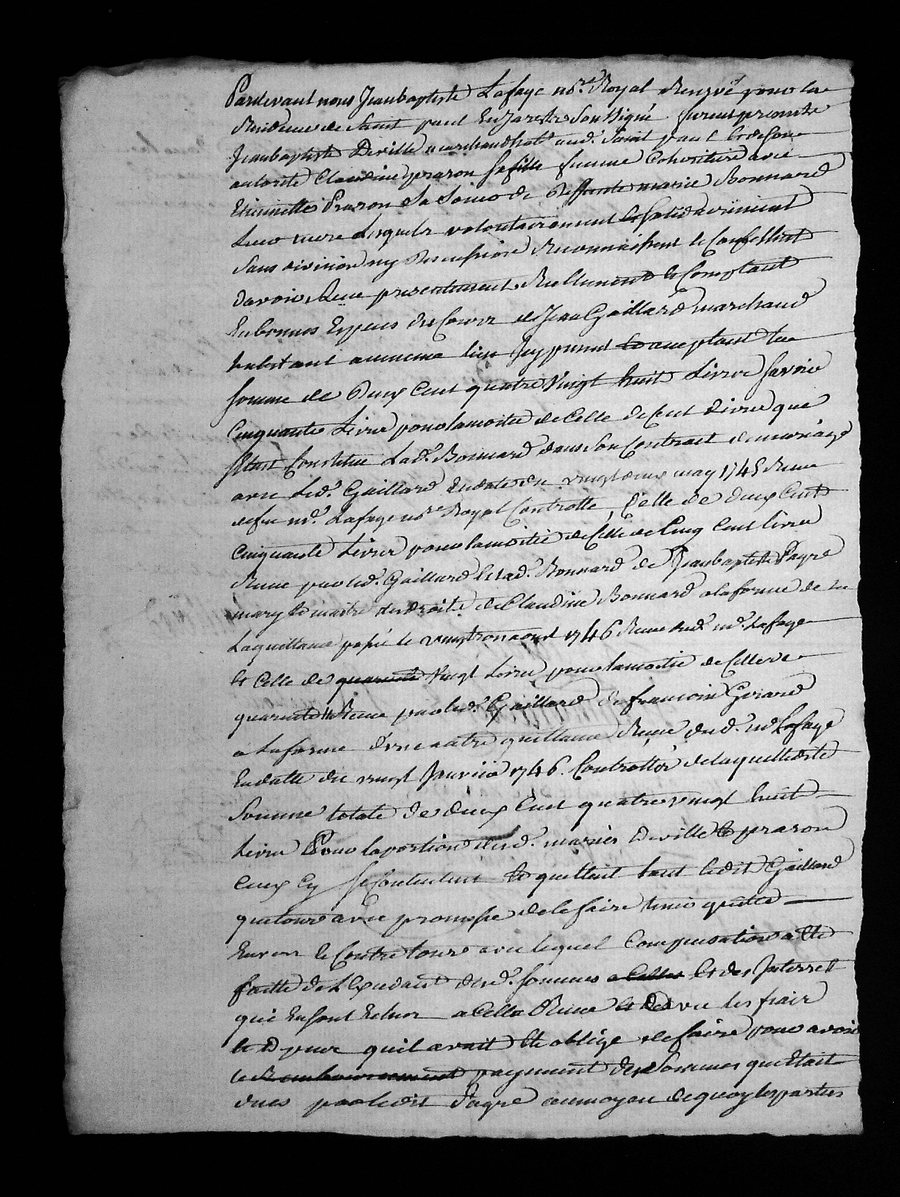 Pardevant nous Jeanbaptiste Lafaye no.re Royal Reservé pour la
Residence de Saint paul En Jarest Soussigné furent presents
Jeanbaptiste Deville marchand aud. Saint paul & de son
autorité Claudine prazon sa femme Coheritiere avec
Etiennette Prazon Sa Soeur de deffunte marie Bonnard
Leur mere Lesquels volontairement & Solidairement
Sans division ny discussion Reconnaissent & Confessent
davoir Reçu presentement Réellement & Comptant
En bonnes Especes du Cours de Jean Gaillard marchand
habitant au meme lieu Icy present & acceptant La
Somme de Deux Cent quatre Vingt huit Livres Savoir
Cinquante Livres pour la moitié de Celle de Cent Livres que
sétait Constitué Lad. Bonnard dans son Contract de mariage
avec Led. Gaillard En datte du vingt deux may 1745 Reçu
de feu m.e Lafaye no.re Royal Controllé, Celle de deux Cent
Cinquante Livres pour la moitié de Celle de Cinq Cent Livres
Reçue par led. Gaillard & lad. Bonnard de Jeanbaptiste Fayre
mary & maitre des droits de Claudine Bonnard a la forme de la
La quittance passé le vingt trois aoust 1746 Reçue dud. m.e Lafaye
& Celle de quarente Vingt Livres pour la moitié de Celle de
quarente Reçue par led. Gaillard de francois Gerard
a La forme d'une autre quittance Reçue dud. m.e Lafaye
En datte du vingt Janvier 1746. Controllés de laquelle ditte
Somme totale de deux Cent quatre vingt huit
Livres Pour la portion desd. mariés Deville & prazon
Ceux Cy se Contentent & quittent tant ledit Gaillard
que tous avec promesse de le faire tenir quitte
Envers & Contre tous avec lequel Compensation a Eté
faitte de L'Excedant desd. Sommes a Celles & des Interrest
qui En sont Echus a Celle Reçue & des vu Les frais
& D qu'il avait Eté obligé de faire pour avoir
le Remboursement payement des Sommes quétait
dues par ledit Fayre au moyen de quoy les parties